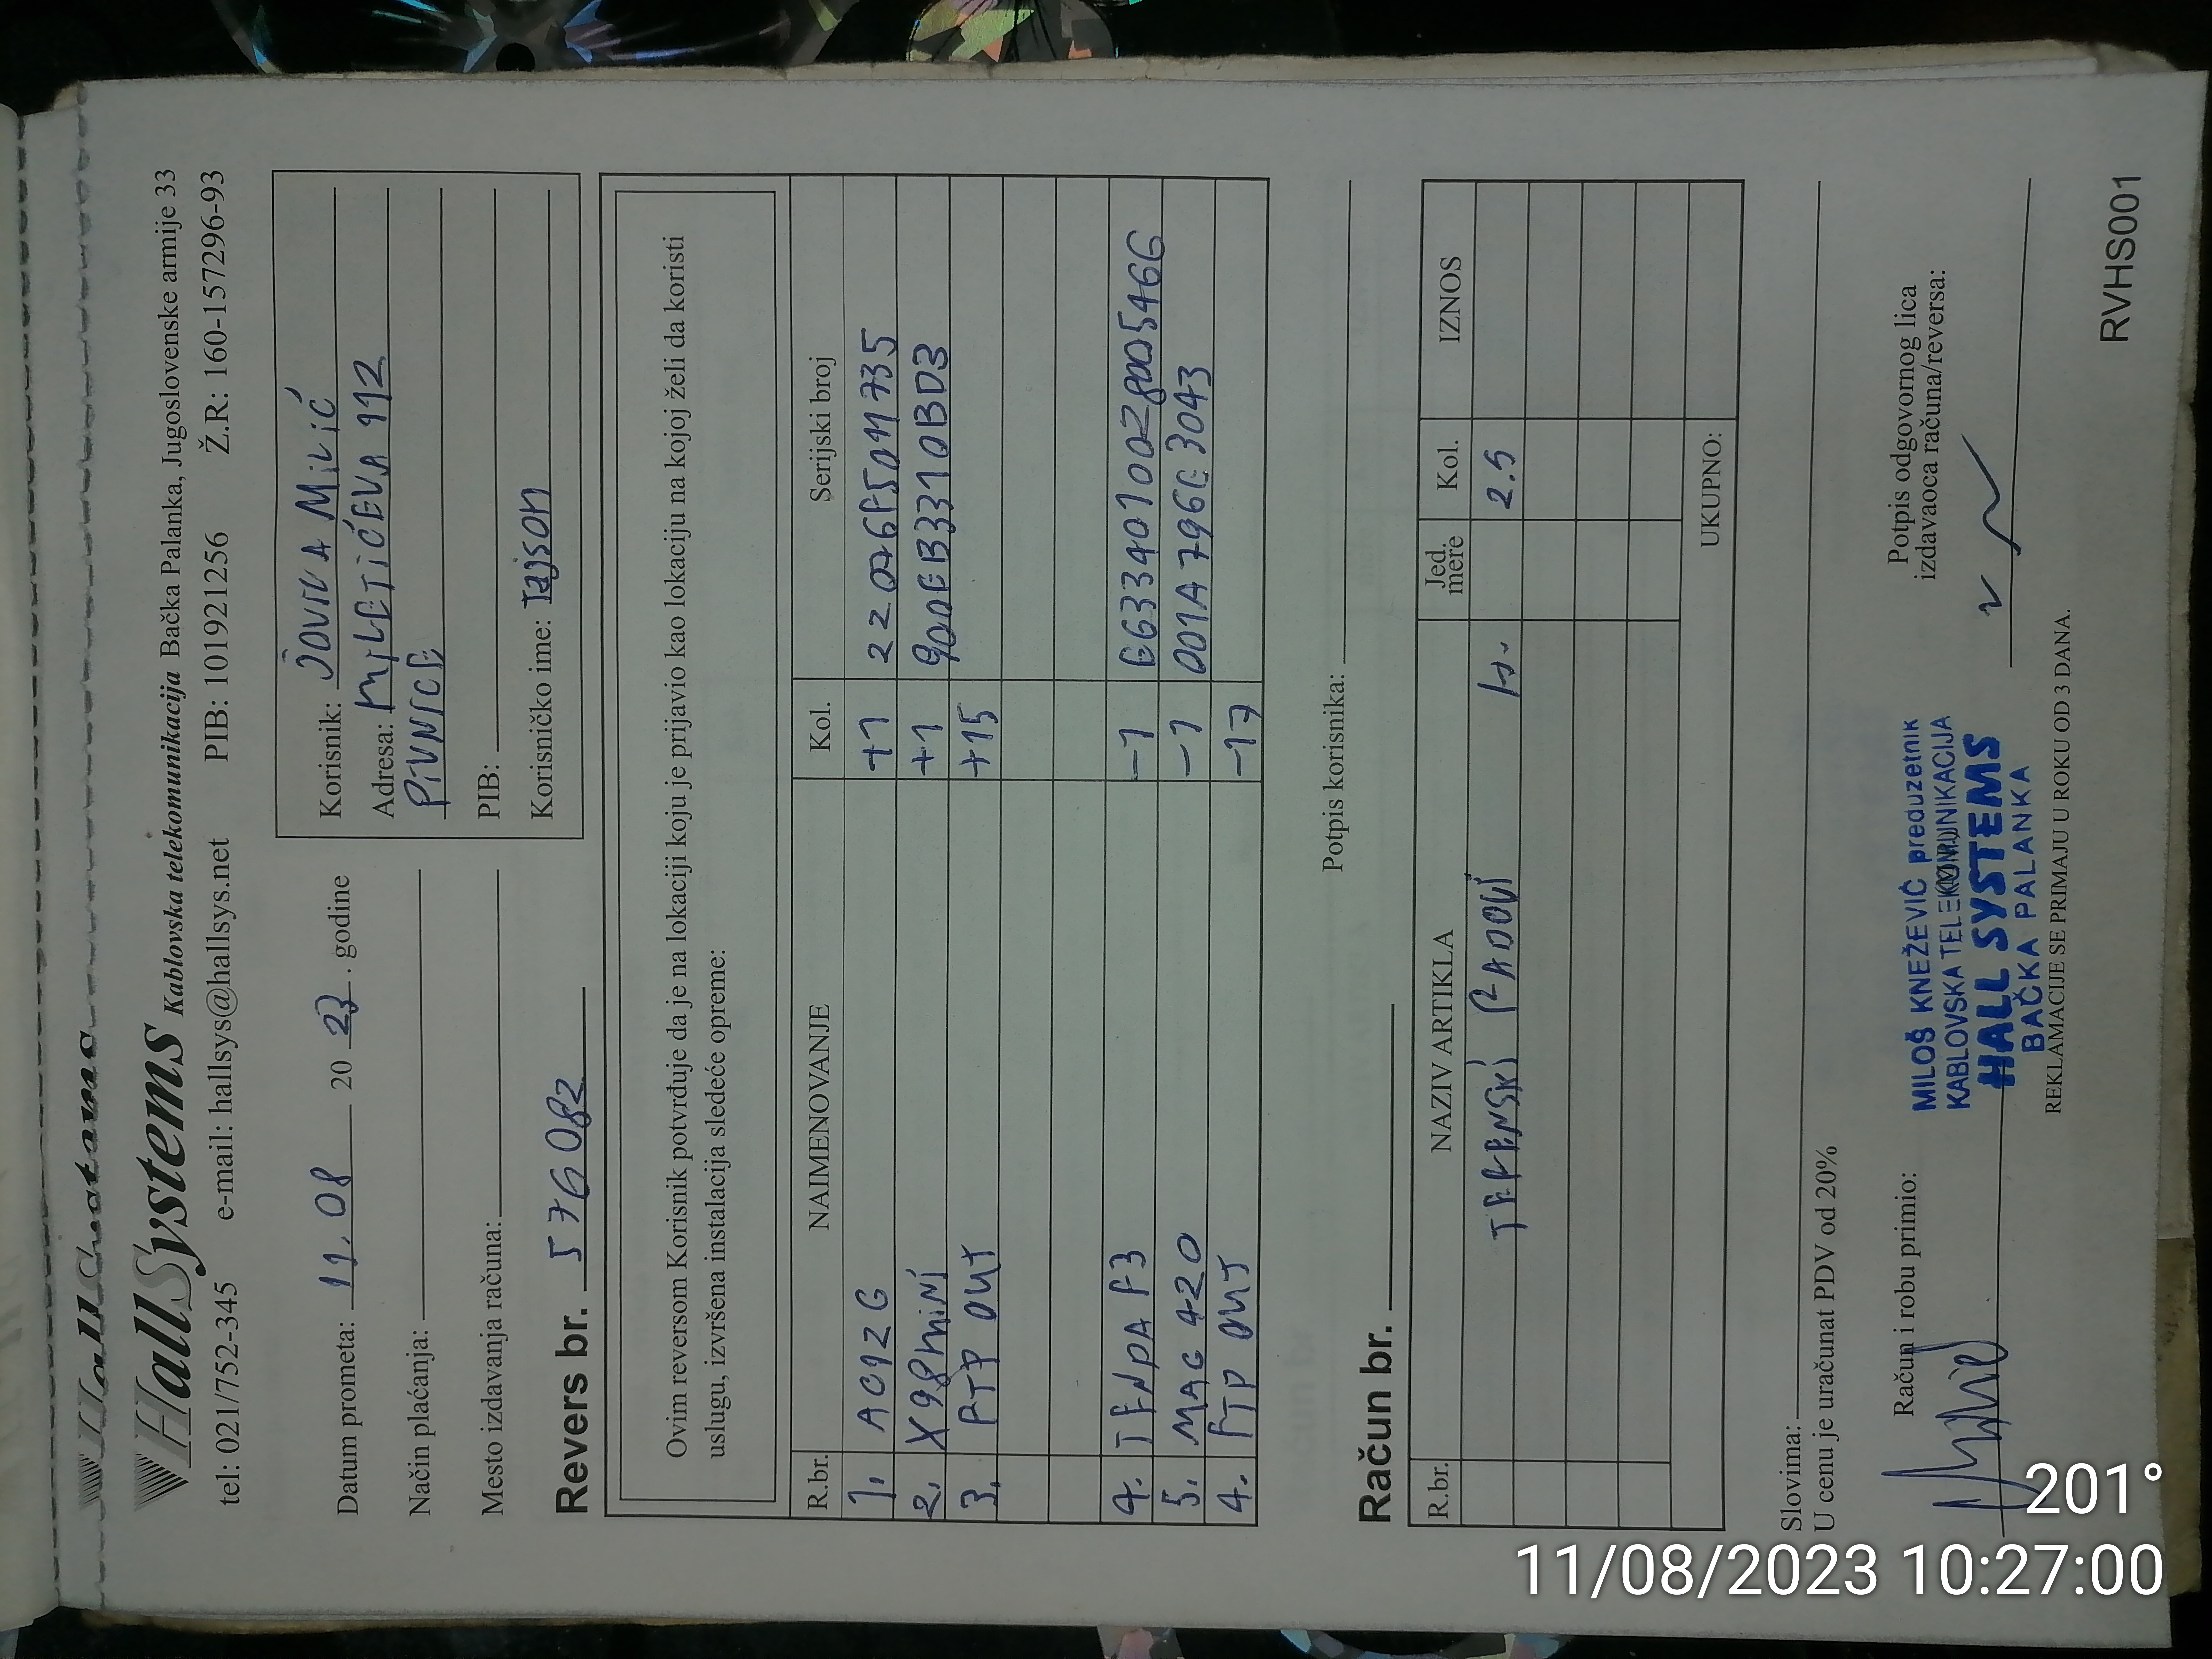 HallSystems Kablovska telekomunikacija Bačka Palanka, Jugoslovenske armije 33
tel: 021/752-345 e-mail: hallsys@hallsys.net PIB: 101921256 Ž.R: 160-157296-93
Datum prometa: 11.08 20 23. godine
Način plaćanja:
Mesto izdavanja računa:
Revers br. 576082
Korisnik: JOVICA MILIĆ
Adresa: MILETIĆEVA 112
PIVNICE
PIB:
Korisničko ime: Tajson
Ovim reversom Korisnik potvrđuje da je na lokaciji koju je prijavio kao lokaciju na kojoj želi da koristi
uslugu, izvršena instalacija sledeće opreme:
R.br. NAIMENOVANJE Kol. Serijski broj
1. AC12G +1
2. X98MINI +1
3. FTP OUT +15
4. TENDA F3 -1
5. MAG 420 -1 001A796C3043
4. FTP OUT -17
Potpis korisnika:
Račun br.
R.br. NAZIV ARTIKLA Jed. mere Kol. IZNOS
TERENSKI RADOVI 2.5
UKUPNO:
Slovima:
U cenu je uračunat PDV od 20%
Račun i robu primio:
MILOŠ KNEŽEVIĆ preduzetnik
KABLOVSKA TELEKOMUNIKACIJA
HALL SYSTEMS
BAČKA PALANKA
Potpis odgovornog lica
izdavaoca računa/reversa:
REKLAMACIJE SE PRIMAJU U ROKU OD 3 DANA.
RVHS001
201°
11/08/2023 10:27:00